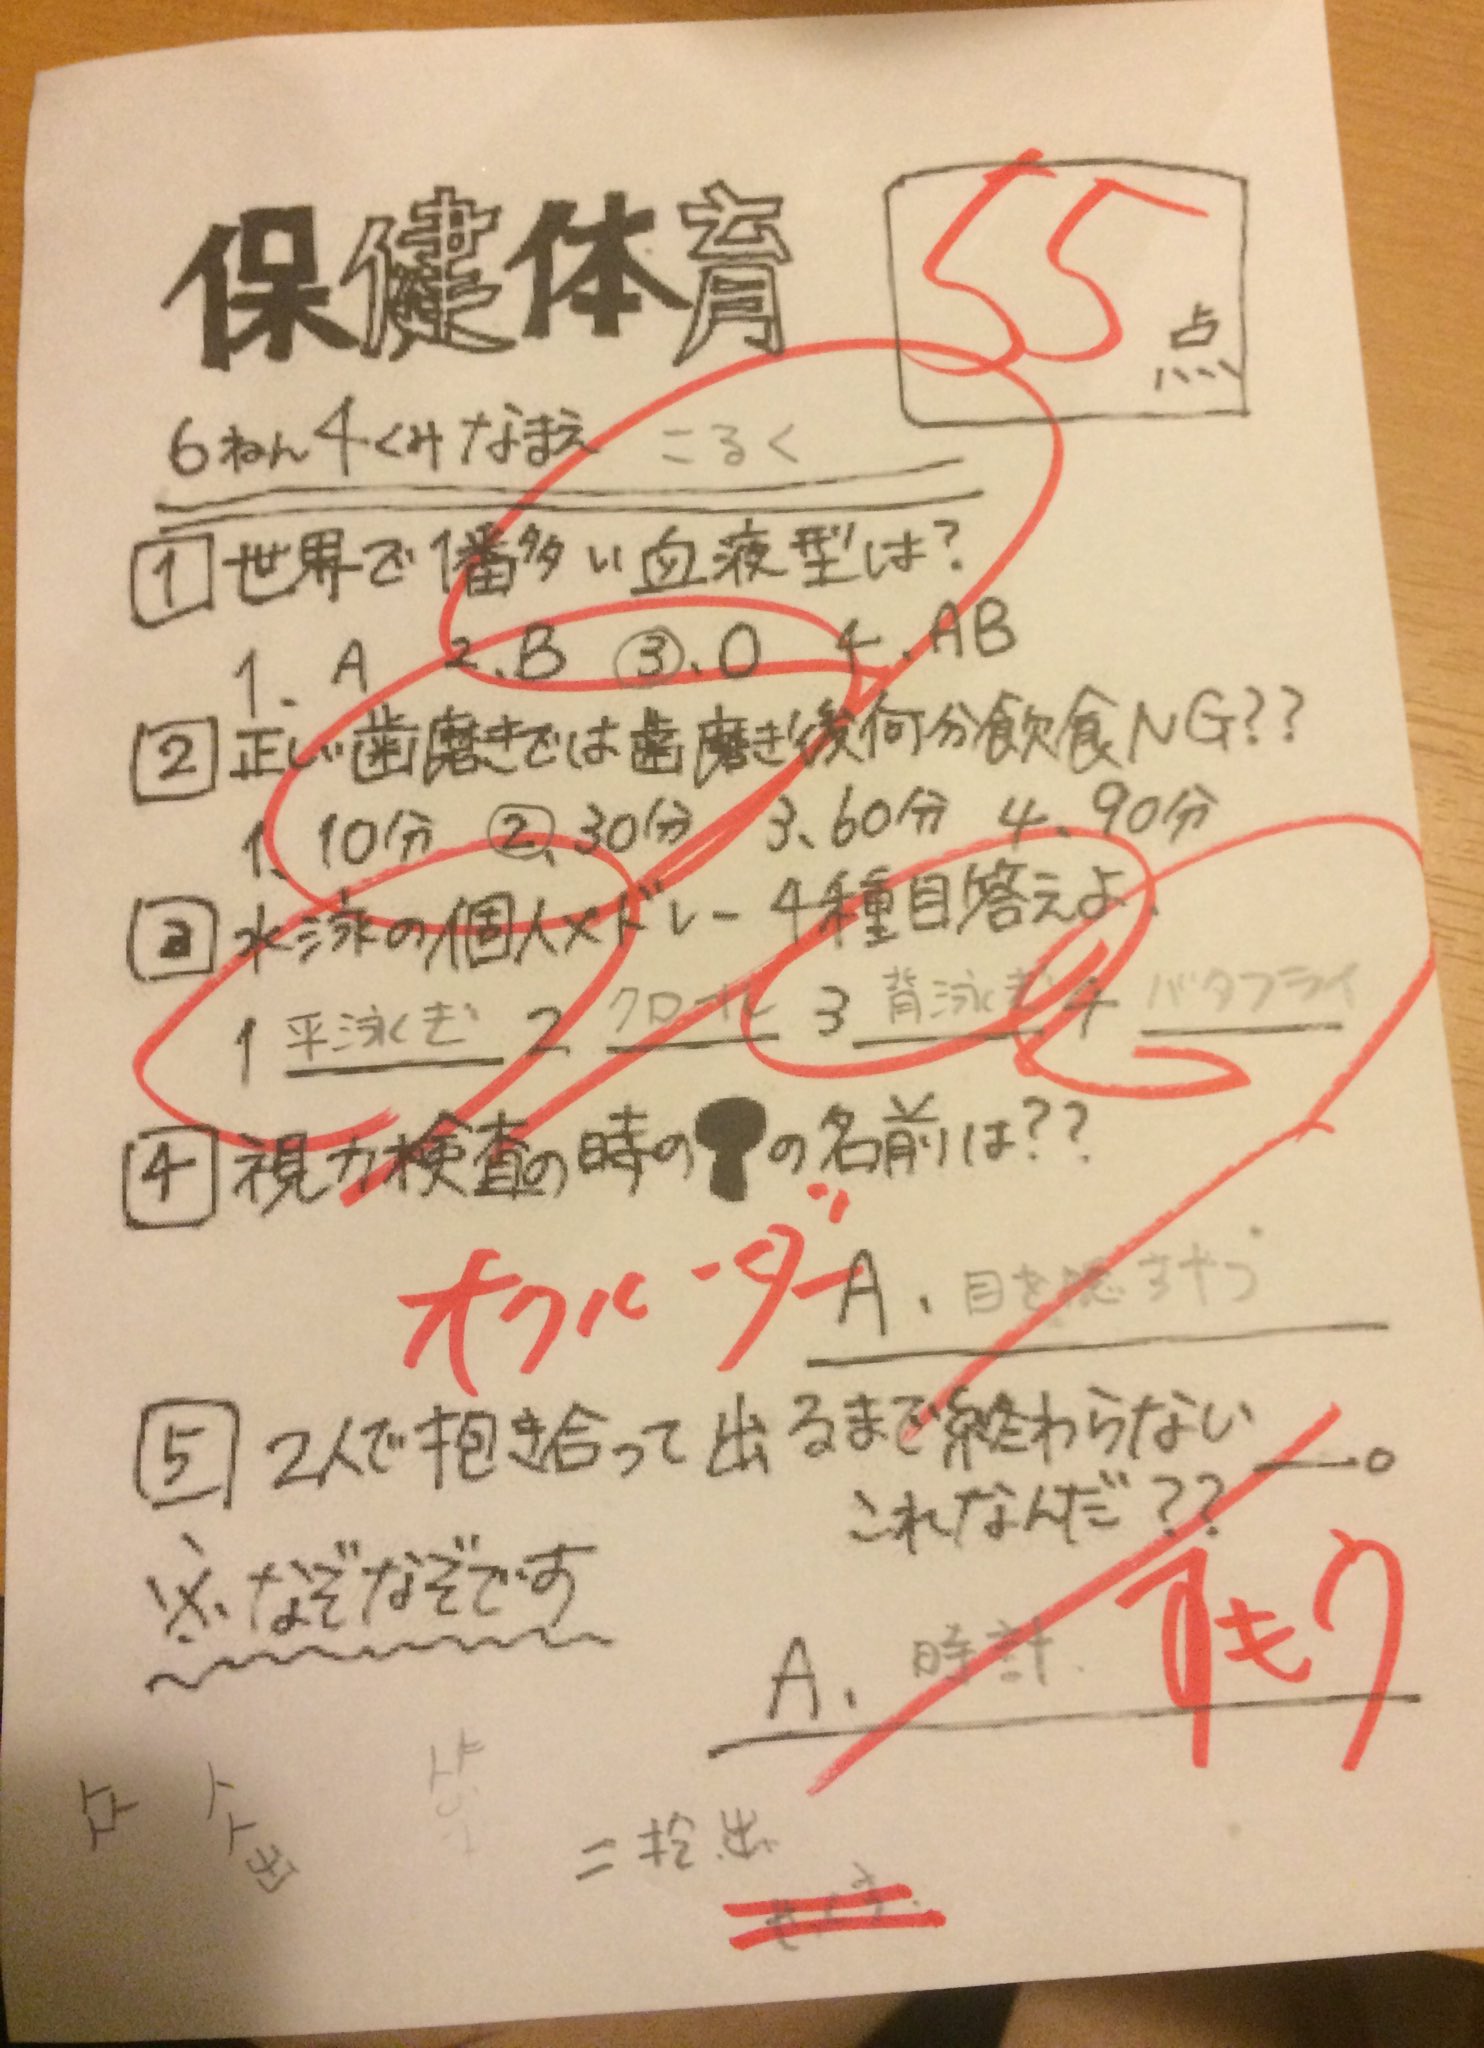 保健体育
55点
6ねん4くみ なまえ こるく
1 世界で1番多い血液型は?
1、A 2、B 3、O 4、AB
2 正しい歯磨きでは歯磨き後何分飲食NG??
1、10分 2、30分 3、60分 4、90分
3 水泳の個人メドレー4種目答えよ、
1 平泳ぎ 2 クロール 3 背泳ぎ 4 バタフライ
4 視力検査の時の の名前は??
オクルーダー
A、目を隠すやつ
5 2人で抱き合って出るまで終わらない
これなんだ??
すもう
※なぞなぞです
A、時計